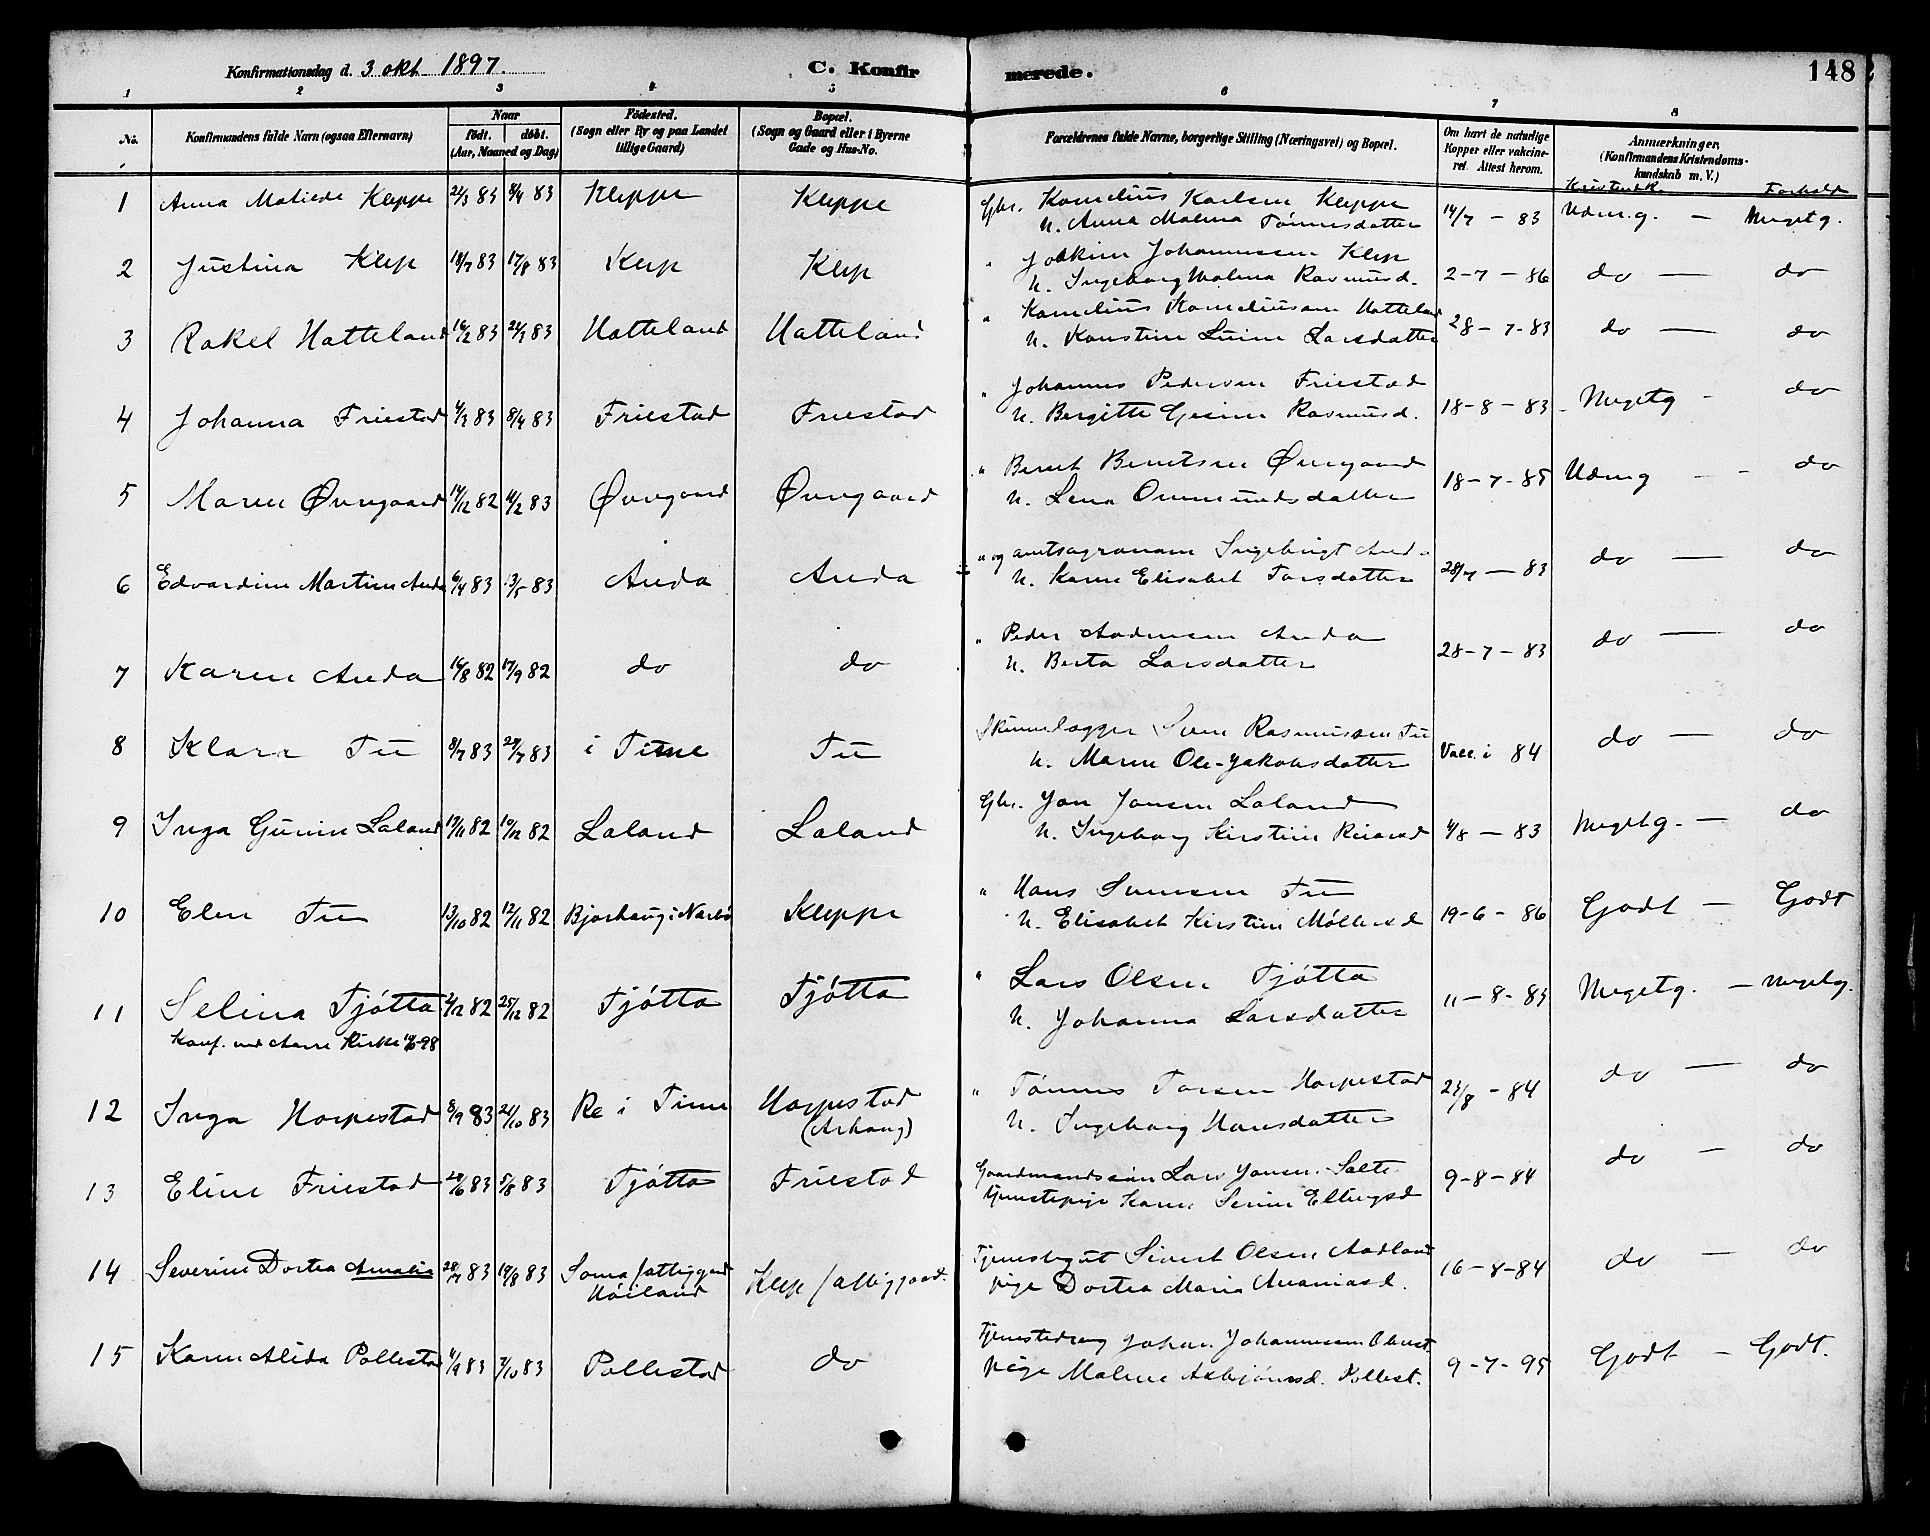 Konfirmationsdag d. 3 okt. 1897.
C. Konfirmerede.
148
1 2 3 4 5 6 7 8
No.
Konfirmandens fulde Navn (ogsaa Efternavn)
Naar
født. døbt.
(Aar, Maaned og Dag)
Fødested.
(Sogn eller By og paa Landet
tillige Gaard)
Bopæl.
(Sogn og Gaard eller i Byerne
Gade og Hus-No.
Forældrenes fulde Navne, borgerlige Stilling (Næringsvei) og Bopæl.
Om havt de naturlige
Kopper eller vakcine-
ret. Attest herom.
Anmærkninger.
(Konfirmandens Kristendoms-
kundskab m. V.)
Kristendk. Forhold
1 Anna Matilde Kleppe 24/3 83 8/4 83 Kleppe Kleppe Gbr. Kornelius Karlsen Kleppe 14/7 – 83 Udm.g. – Megetg.
H. Anna Malena Tønnesdatter
2 Justina Klep 18/7 83 17/8 83 Klep Klep " Joakim Johannessen Klep 2-7-86 do – do
H. Ingeborg Malena Rasmusd.
3 Rakel Hatteland 16/2 83 24/3 83 Hatteland Hatteland " Kornelius Korneliussen Hatteland 28-7-83 do – do
H. Konstine Larsdatter
4 Johanna Friestad 4/3 83 8/4 83 Friestad Friestad " Johannes Pedersen Friestad 18-8-83 Megetg – do
H. Bergitte Gesine Rasmusd.
5 Maren Øvregaard 14/12 82 11/2 83 Øvregaard Øvregaard " Bernt Berntsen Øvregaard 18-7-85 Udmg – do
H. Lena Ommundsdatter
6 Edvardine Martine Anda 6/4 83 3/5 83 Anda Anda " og amtsagronom Ingebrigt Anda 28/7 – 83 do – do
H. Karen Elisabet Torsdatter
7 Karen Anda 16/8 82 17/9 82 do do " Peder Andersen Anda 28-7-83 do – do
H. Berta Larsdatter
8 Klara Tu 8/7 83 29/7 83 i Time Tu Skinnelægger Sven Rasmussen Tu Vacc. i 84 do – do
H. Maren Ole-Jakobsdatter
9 Inga Gurine Laland 19/11 82 10/12 82 Laland Laland Gbr. Jon Jonsen Laland 4/8 – 83 Megetg. – do
H. Ingeborg Kirstine Reiarsd
10 Elen Tu 13/10 82 12/11 82 Bjorhaug i Nærbø Kleppe " Hans Svensen Tu 19-6-86 Godt – Godt
H. Elisabet Kirstine Møllersd
11 Selina Tjøtta 2/12 82 25/12 82 Tjøtta Tjøtta " Lars Olsen Tjøtta 11-8-83 Megetg. – Megetg.
Konf. ved Aarre Kirke 98 H. Johanna Larsdatter
12 Inga Horpestad 8/9 83 21/10 83 Re i Time Horpestad " Tønnes Torsen Horpestad 23/8 – 84 do – do
(Arhaug) H. Ingeborg Hansdatter
13 Eline Friestad 20/6 83 5/8 83 Tjøtta Friestad Gaardmandssøn Lars Jonsen Salte 9-8-84 do – do
tjenestepige Karen Serine Ellingsd
14 Severine Dortea Amalia 28/7 83 19/8 83 Soma fattiggaard Klep fattiggaard. Tjenestegut Sivert Olsen Aadland 16-8-84 do – do
Høiland pige Dortea Marie Ananiasd.
15 Karen Alida Pollestad 4/9 83 7/10 83 Pollestad do Tjenestedreng Johan Johannessen 9-7-95 Godt – Godt.
pige Malene Asbjørnsd. Pollest.